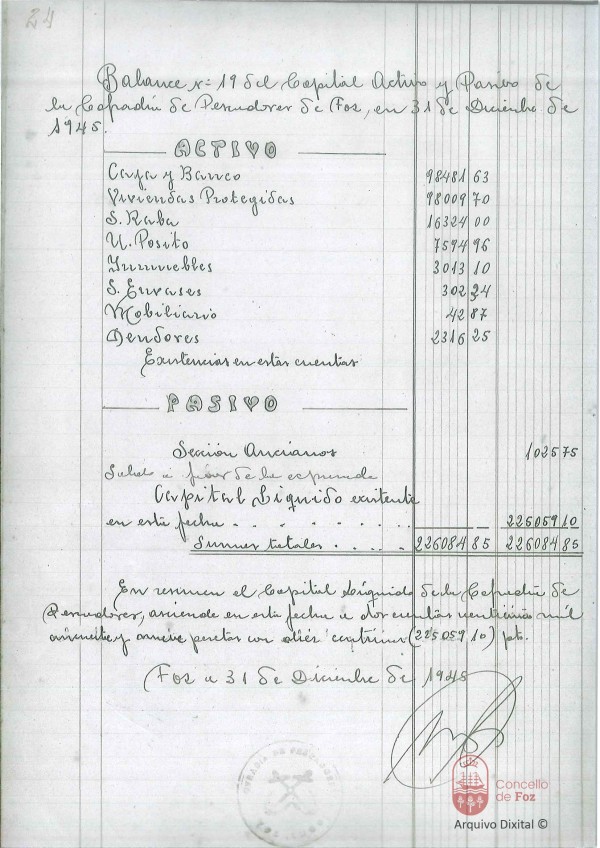 24
Balance nº 19 del Capital Activo y Pasivo de
la Cofradia de Pescadores de Foz, en 31 de Diciembre de
1945.
ACTIVO
Caja y Banco 98481 63
Viviendas Protegidas 98009 70
S. Raba 16324 00
N. Posito 7594 96
Inmuebles 3013 10
S. Envases 302 24
Mobiliario 42 87
Deudores 2316 25
Existencias en estas cuentas
PASIVO
Sección Ancianos 1025 75
Saldo a favor de la expresada
Capital Liquido existente
en esta fecha . . . . . . . 225059 10
Sumas totales . . . . . 226084 85 226084 85
En resumen el Capital Líquido de la Cofradia de
Pescadores, asciende en esta fecha a doscientas venticinco mil
cincuenta y nueve pesetas con diéz centimos (225059 10) pts.
Foz a 31 de Diciembre de 1945
COFRADIA DE PESCADORES
FOZ
Concello
de Foz
Arquivo Dixital ©